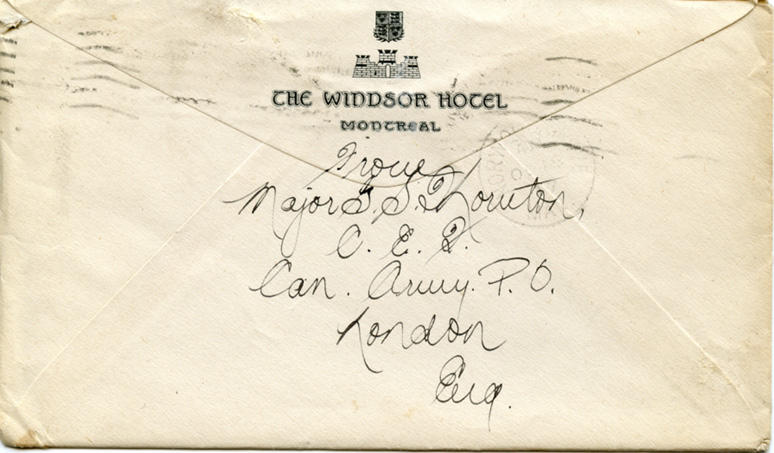 THE WINDSOR HOTEL
MONTREAL
From
Major S. S. Thornton,
C. E. F.
Can. Army. P. O.
London
Eng.